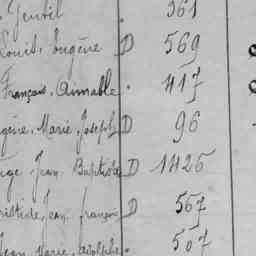 Gentil . 361
Louis, Eugène D 569
François, Aimable . 417
gène, Marie, Joseph D 96
Jean Baptiste D 1426
ristide, Jean, françois D 567
Jean, Marie, adolphe . 507